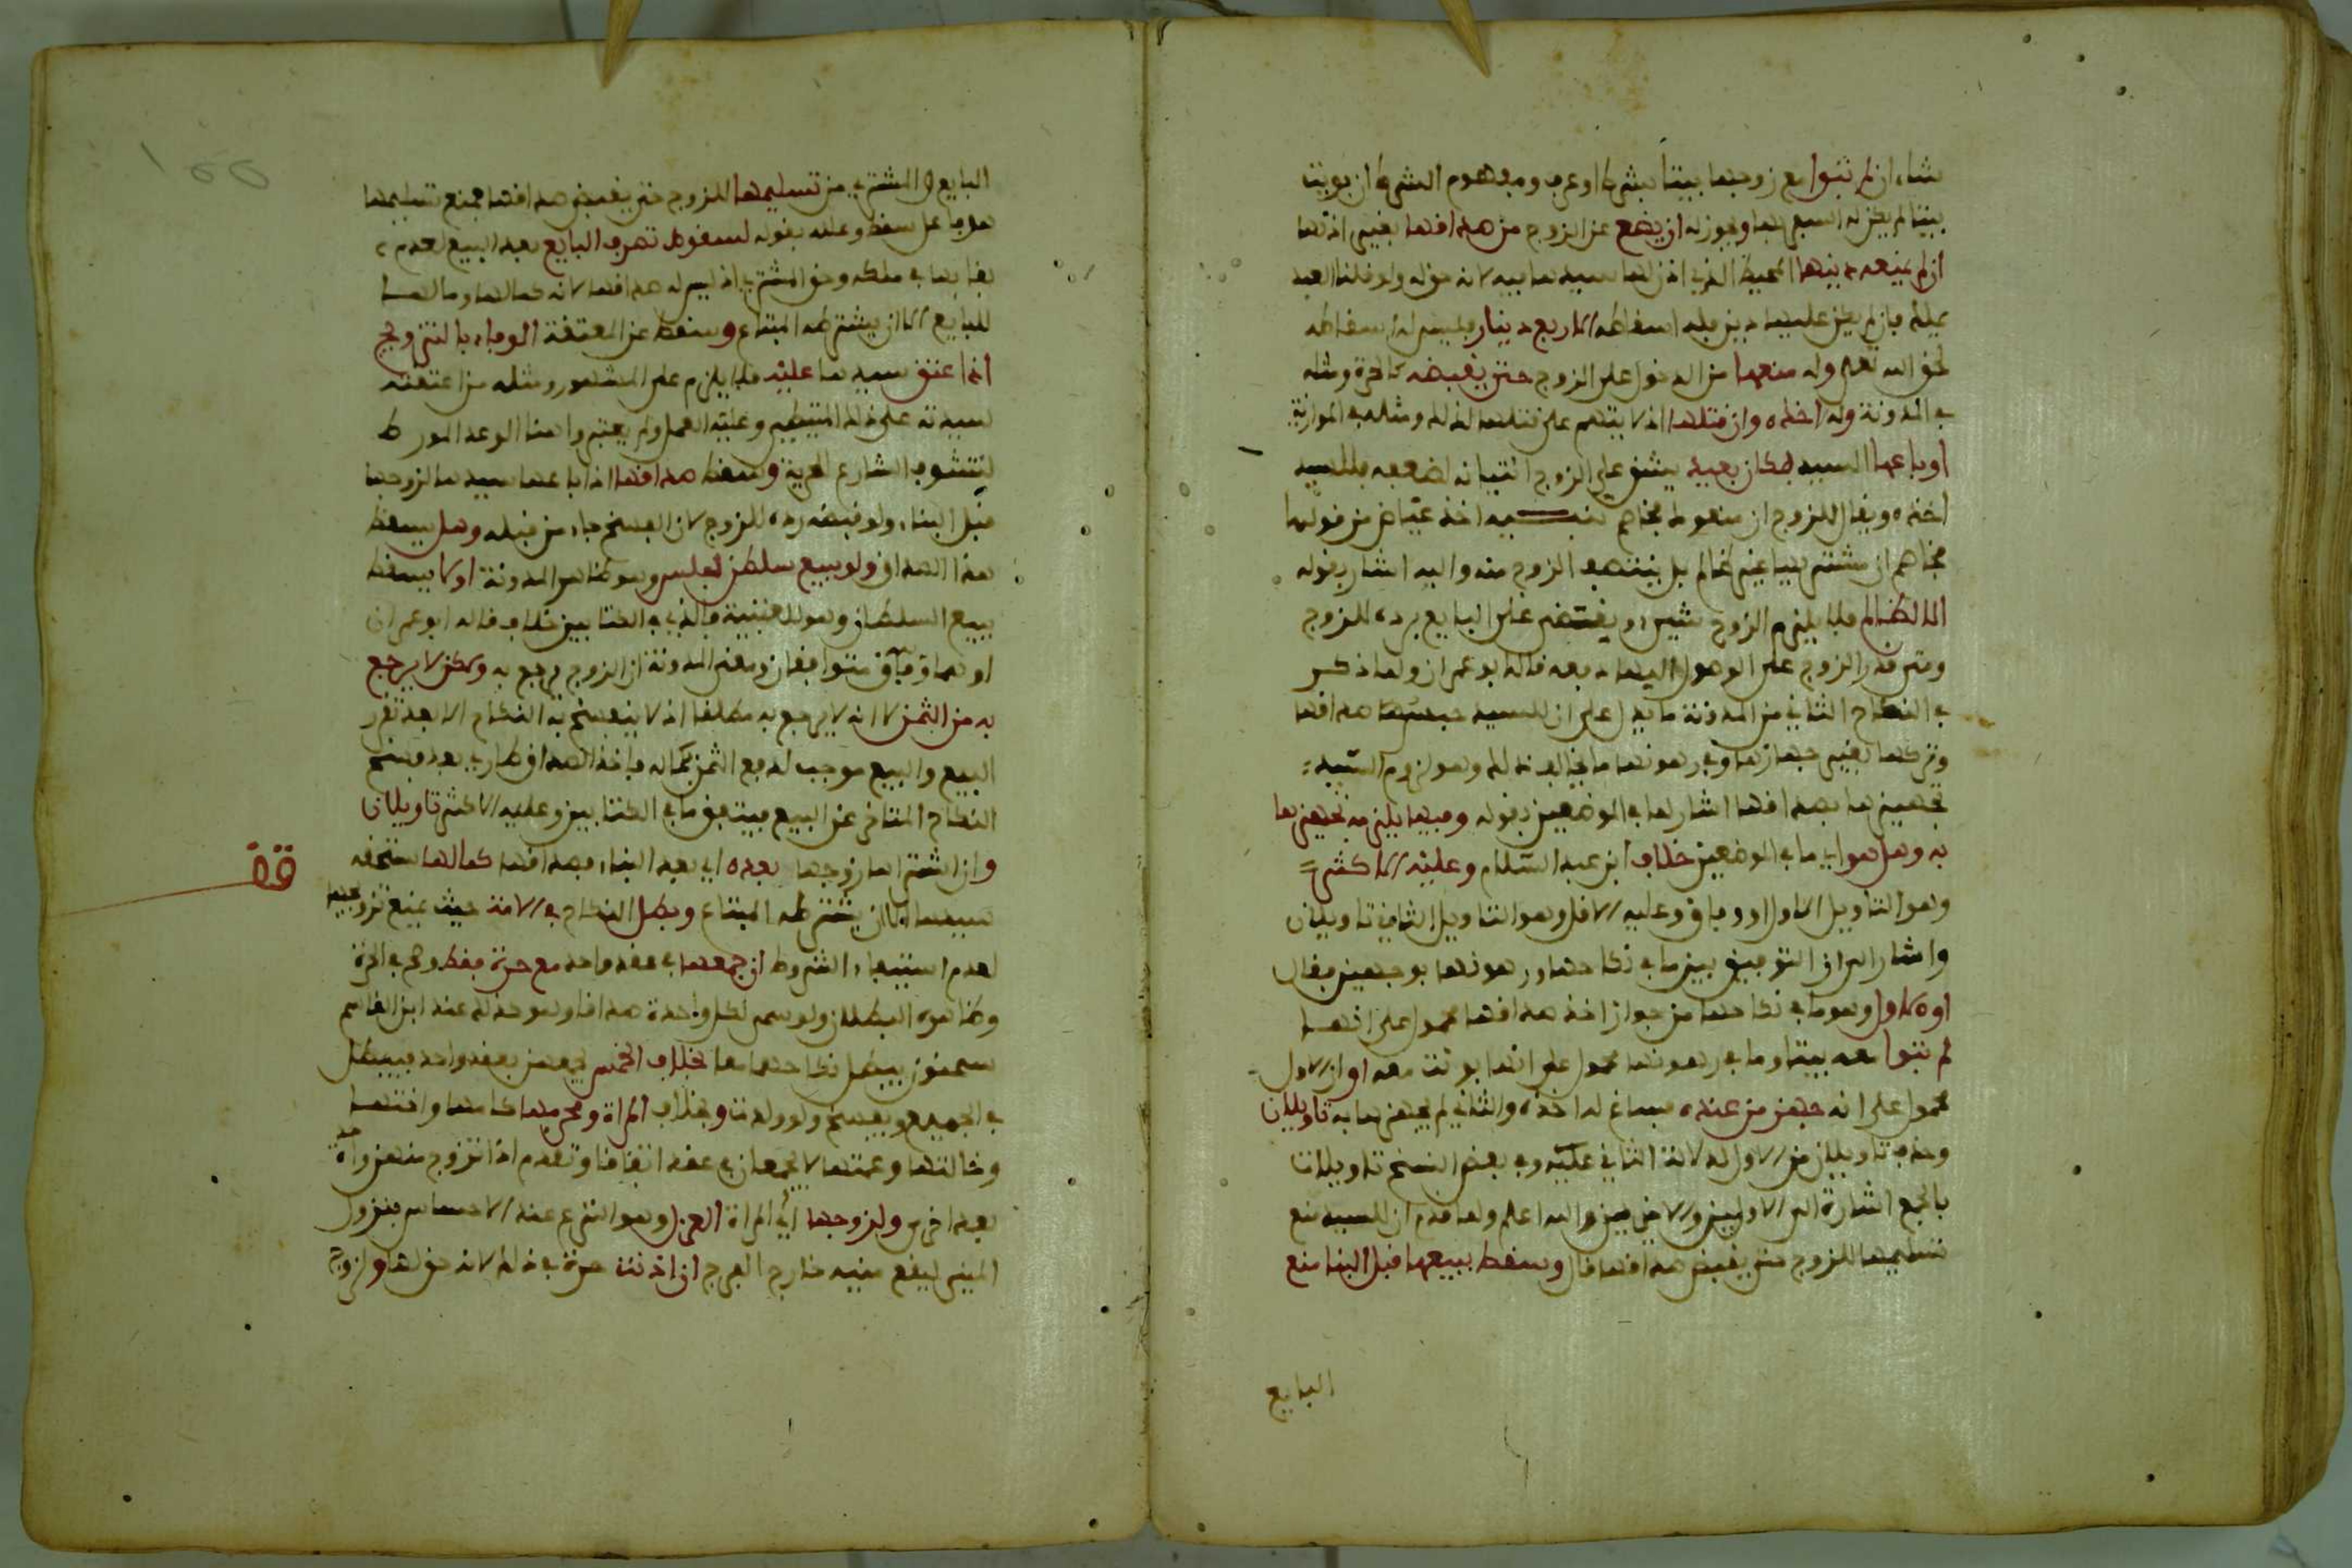 شاء ان لم تبوا مع زوجها بيتا بشرط او عرف ومفهوم الشرط ان بويت
بيتا لم يكن له السفر بها ويجوز له ان يضع عن الزوج من صداقها بغير اذنها
ان لم يمنعه دينها المحيط الذي اذن لها سيدها فيه لانه حق له ولو قلنا العبد
يملك فان لم يكن عليها دين فله اسقاطه الا ربع دينار فليس له اسقاطه
لحق الله تعلى وله منعها من الدخول على الزوج حتى يقبضه كالحرة ومثله
في المدونة وله اخذه وان قتلها اذ لا يتهم على قتلها لذلك ومثله في الموازية
او باعها السيد بمكان بعيد يشق على الزوج اتيانه لضعفه فللسيد
اخذه ويقال للزوج ان منعوك فخاصم اخذ عياض من قولها
فخاصم ان مشتريها غير ظالم بل ينتصف الزوج منه واليه اشار بقوله
الا لظالم فلا يلزم الزوج شيء ويقتضى على البايع برده للزوج
ومتى قدر الزوج على الوصول اليها دفعه قاله بو عمران ولما ذكر
في النكاح الثاني من المدونة ما يدل على ان للسيد حبس صداقها
وتركها بغير جهازها وفي رهونها ما يخالف ذلك وهو لزوم السيد
تجهيزها بصداقها اشار لما في الموضعين بقوله وفيها يلزمه تجهيزها
به وهل هو اي ما في الموضعين خلاف ابن عبد السلام وعليه الاكثر
وهو التاويل الاول او وفاق وعليه الاقل وهو التاويل الثاني تاويلان
واشار الى ان التوفيق بين ما في نكاحها ورهونها بوجهين فقال
او الاول وهو ما في نكاحها من جواز اخذ صداقها محمول على انها
لم تبوا معه بيتا وما في رهونها محمول على انها بوئت معه او ان الاول
محمول على انه جهز من عنده فساغ له اخذه والثاني لم يجهزها به تاويلان
وحذف تاويلان من الاول لدلالة الثاني عليه وفي بعض النسخ تاويلات
بالجمع اشارة الى الاولين والاخيرين والله اعلم ولما قدم ان للسيد منع
تسليمها للزوج حتى يقبض صداقها قال وسقط ببيعها قبل البنا منع
البايع
البايع والمشتري من تسليمها للزوج حتى يقبض صداقها فمنع تسليمها
فاعل سقط وعلله بقوله لسقوط تصرف البايع بعد البيع لعدم
بقايها في ملكه وحق المشتري اذ ليس له صداقها لانه كمالها ومالها
للبايع الا ان يشترطه المبتاع وسقط عن المعتقة الوفاء بالتزويج
اذا عتق سيدها عليه فلا يلزم على المشهور ومثله من اعتقته
سيدته على ذلك المتيطي وعليه العمل ولم يعتبروا هنا الوعد المورط
لتشوف الشارع للحرية وسقط صداقها اذا باعها سيدها لزوجها
قبل البناء ولو قبضه رده للزوج لان الفسخ جاء من قبله وهل يسقط
هذا الصداق ولو ببيع سلطان لفلس وهو ظاهر المدونة او لا يسقط
ببيع السلطان وهو للعتبية فالذي في الكتابين خلاف قاله ابو عمران
او هما وفاق فقال ومعنى المدونة ان الزوج يرجع به ولكن لا يرجع
به من الثمن لا انه لا يرجع به مطلقا اذ لا ينفسخ به النكاح الا بعد تقرر
البيع والبيع موجب لدفع الثمن بكماله فاخذ الصداق طارئ بعد فسخ
النكاح المتاخر عن البيع فيتفق ما في الكتابين وعليه الاكثر تاويلان
وان اشتراها زوجها بعده اي بعد البناء فصداقها كمالها يستحقه
سيدها الا ان يشترطه المبتاع وبطل النكاح في الامة حيث يمنع تزويجها
لعدم استيفاء الشروط ان جمعها في عقد واحد مع حرة فقط وصح في الحرة
وظاهره البطلان ولو سمى لكل واحدة صداقا وهو كذلك عند ابن القاسم
سحنون يبطل نكاحهما معا بخلاف الخمس يجمعهن بعقد واحد فيبطل
في الجميع ويفسخ ولو ولدت وبخلاف المراة ومحرمها كامها واختها
وخالتها وعمتها لا يجمعان في عقد اتفاقا وتقدم اذا تزوج منهن واحدة
بعد اخرى ولزوجها اي المراة العزل وهو النزع عند الاحساس بنزول
المني ليقع منيه خارج الفرج ان اذنت حرة في ذلك لانه حق لها ولزوج
قف